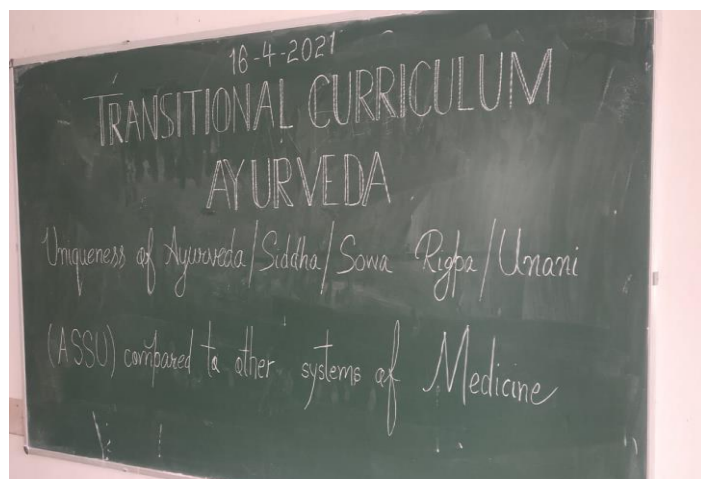 16-4-2021
TRANSITIONAL CURRICULUM
AYURVEDA
Uniqueness of Ayurveda/Siddha/Sowa Rigpa/Unani
(ASSU) compared to other systems of Medicine